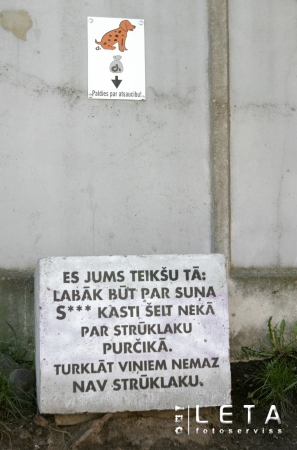 Paldies par atsaucību!
ES JUMS TEIKŠU TĀ:
LABĀK BŪT PAR SUŅA
S*** KASTI ŠEIT NEKĀ
PAR STRŪKLAKU
PURČIKĀ.
TURKLĀT VIŅIEM NEMAZ
NAV STRŪKLAKU.
LETA
fotoserviss